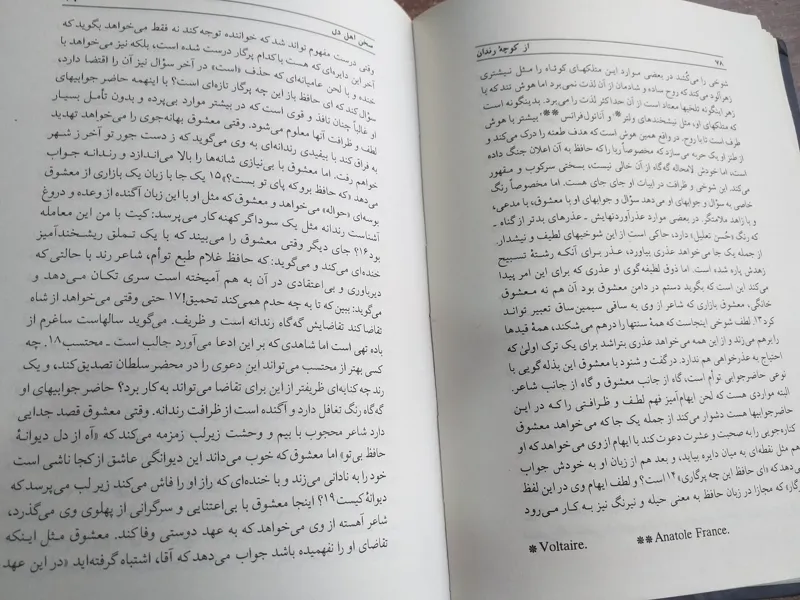 ۷۸
از کوچهٔ رندان
شوخی را می‌کُشند در بعضی موارد این متلکهای کوتاه را مثل نیشتری
زهرآلود می‌کند که روح ساده و شادمان از آن لذت نمی‌برد اما هوش تند که با
زهر اینگونه تلخیها معتاد است از آن حداکثر لذت را می‌برد. بدینگونه است
که متلکهای او، مثل نیشخندهای ولتر* و آناتول‌فرانس**، بیشتر با هوش
طرف است تا با روح. در واقع همین هوش است که هدف طعنه را درک می‌کند و
از طنز او یک حربه می‌سازد که مخصوصاً ریا که حافظ به آن اعلان جنگ داده
است، اما خودش لامحاله گه‌گاه از آن خالی نیست، بسختی سرکوب و مقهور
می‌کند. این شوخی و ظرافت در ابیات او جای جای هست. اما مخصوصاً رنگ
خاصی به سؤال و جوابهای او می‌دهد سؤال و جوابهای او با معشوق، با مدعی،
و با زاهد ملامتگر. در بعضی موارد عذرآوردنهایش ـ عذرهای بدتر از گناه ـ
که رنگ «حُسن تعلیل» دارد، حاکی است از این شوخیهای لطیف و نیشدار.
از جمله یک جا می‌خواهد عذری بیاورد، عذر برای آنکه رشتهٔ تسبیح
زهدش پاره شده است. اما ذوق لطیفه‌گوی او عذری که برای این امر پیدا
می‌کند این است که بگوید دستم در دامن معشوق بود آن هم نه معشوق
خانگی، معشوق بازاری که شاعر از وی به ساقی سیمین‌ساق تعبیر تواند
کرد۱۳. لطف شوخی اینجاست که همهٔ سنتها را درهم می‌شکند، همهٔ قیدها
را برهم می‌زند و از این همه می‌خواهد عذری بتراشد برای یک ترک اولیٰ که
احتیاج به عذرخواهی هم ندارد. در گفت و شنود با معشوق این بذله‌گویی با
نوعی حاضرجوابی توأم است، گاه از جانب معشوق و گاه از جانب شاعر.
البته مواردی هست که لحن ایهام‌آمیز فهم لطف و ظرافتی را که در این
حاضرجوابیها هست دشوار می‌کند از جمله یک جا که می‌خواهد معشوق
کناره‌جویی را به صحبت و عشرت دعوت کند با ایهام از وی می‌خواهد که او
هم مثل نقطه‌ای به میان دایره بیاید، و بعد هم از زبان او به خودش جواب
می‌دهد که «ای حافظ این چه پرگاری»۱۴ است؟ و لطف ایهام وی در این لفظ
که مجازا در زبان حافظ به معنی حیله و نیرنگ نیز به کار می‌رود
* Voltaire. ** Anatole France.
سخن اهل دل
وقتی درست مفهوم تواند شد که خواننده توجه کند نه فقط می‌خواهد بگوید که
آخر این دایره‌ای که هست با کدام پرگار درست شده است، بلکه نیز می‌خواهد با
خنده و با لحن عامیانه‌ای که حذف «است» در آخر سؤال نیز آن را اقتضا دارد،
سؤال کند که ای حافظ باز این چه پرگار تازه‌ای است؟ با اینهمه حاضر جوابیهای
او غالباً چنان نافذ و قوی است که در بیشتر موارد بی‌پرده و بدون تأمل بسیار
لطف و ظرافت آنها معلوم می‌شود. وقتی معشوق بهانه‌جوی را می‌خواهد تهدید
به فراق کند با بیقیدی رندانه‌ای به وی می‌گوید که ز دست جور تو آخر ز شهر
خواهم رفت. اما معشوق با بی‌نیازی شانه‌ها را بالا می‌اندازد و رندانه جواب
می‌دهد «که حافظ برو که پای تو بست؟»۱۵ یک جا با زبان یک بازاری از معشوق
بوسه‌ای «حواله» می‌خواهد و معشوق که مثل او با این زبان آگنده از وعده و دروغ
آشناست رندانه مثل یک سوداگر کهنه‌کار می‌پرسد: کیت با من این معامله
بود۱۶؟ جای دیگر وقتی معشوق را می‌بیند که با یک تملق ریشخندآمیز
خنده‌ای می‌کند و می‌گوید: که حافظ غلام طبع توأم، شاعر رند با حالتی که
دیرباوری و بی‌اعتقادی در آن به هم آمیخته است سری تکان می‌دهد و
می‌گوید: ببین که تا به چه حدم همی‌کند تحمیق!۱۷ حتی وقتی می‌خواهد از شاه
تقاضا کند تقاضایش گه‌گاه رندانه است و ظریف. می‌گوید سالهاست ساغرم از
باده تهی است اما شاهدی که بر این ادعا می‌آورد جالب است ـ محتسب۱۸. چه
کسی بهتر از محتسب می‌تواند این دعوی را در محضر سلطان تصدیق کند، و یک
رند چه کنایه‌ای ظریفتر از این برای تقاضا می‌تواند به کار برد؟ حاضر جوابیهای او
گه‌گاه رنگ تغافل دارد و آگنده است از ظرافت رندانه. وقتی معشوق قصد جدایی
دارد شاعر محجوب با بیم و وحشت زیرلب زمزمه می‌کند که «آه از دل دیوانهٔ
حافظ بی‌تو» اما معشوق که خوب می‌داند این دیوانگی عاشق از کجا ناشی است
خود را به نادانی می‌زند و با خنده‌ای که راز او را فاش می‌کند زیر لب می‌پرسد که
دیوانهٔ کیست۱۹؟ اینجا معشوق با بی‌اعتنایی و سرگرانی از پهلوی وی می‌گذرد،
شاعر آهسته از وی می‌خواهد که به عهد دوستی وفا کند. معشوق مثل اینکه
تقاضای او را نفهمیده باشد جواب می‌دهد که آقا، اشتباه گرفته‌اید «در این عهد